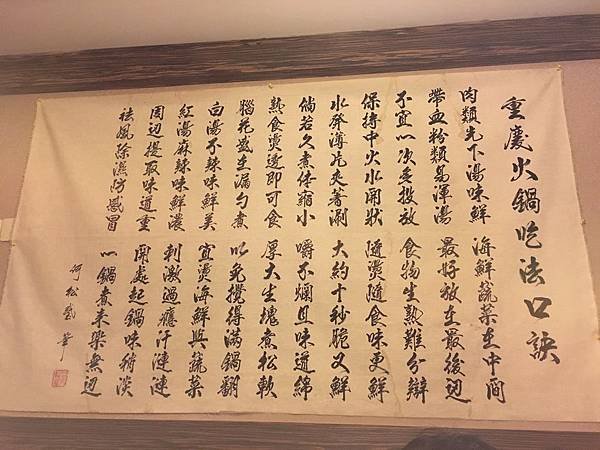 重慶火鍋吃法口訣
肉類先下湯味鮮 海鮮蔬菜在中間
帶血粉類易渾湯 最好放在最後邊
不宜一次多投放 食物生熟難分辯
保持中火水開狀 隨燙隨食味更鮮
水發薄片夾著涮 大約十秒脆又鮮
倘若久煮体縮小 嚼不爛且味道綿
熟食燙透即可食 厚大生塊煮松軟
腦花盛在漏勺煮 以免攪得滿鍋翻
白湯不辣味鮮美 宜燙海鮮與蔬菜
紅湯麻辣味鮮濃 刺激過癮汗漣漣
周边提取味道重 開處起鍋味稍淡
祛風除濕防感冒 一鍋煮來樂無边
何松盛